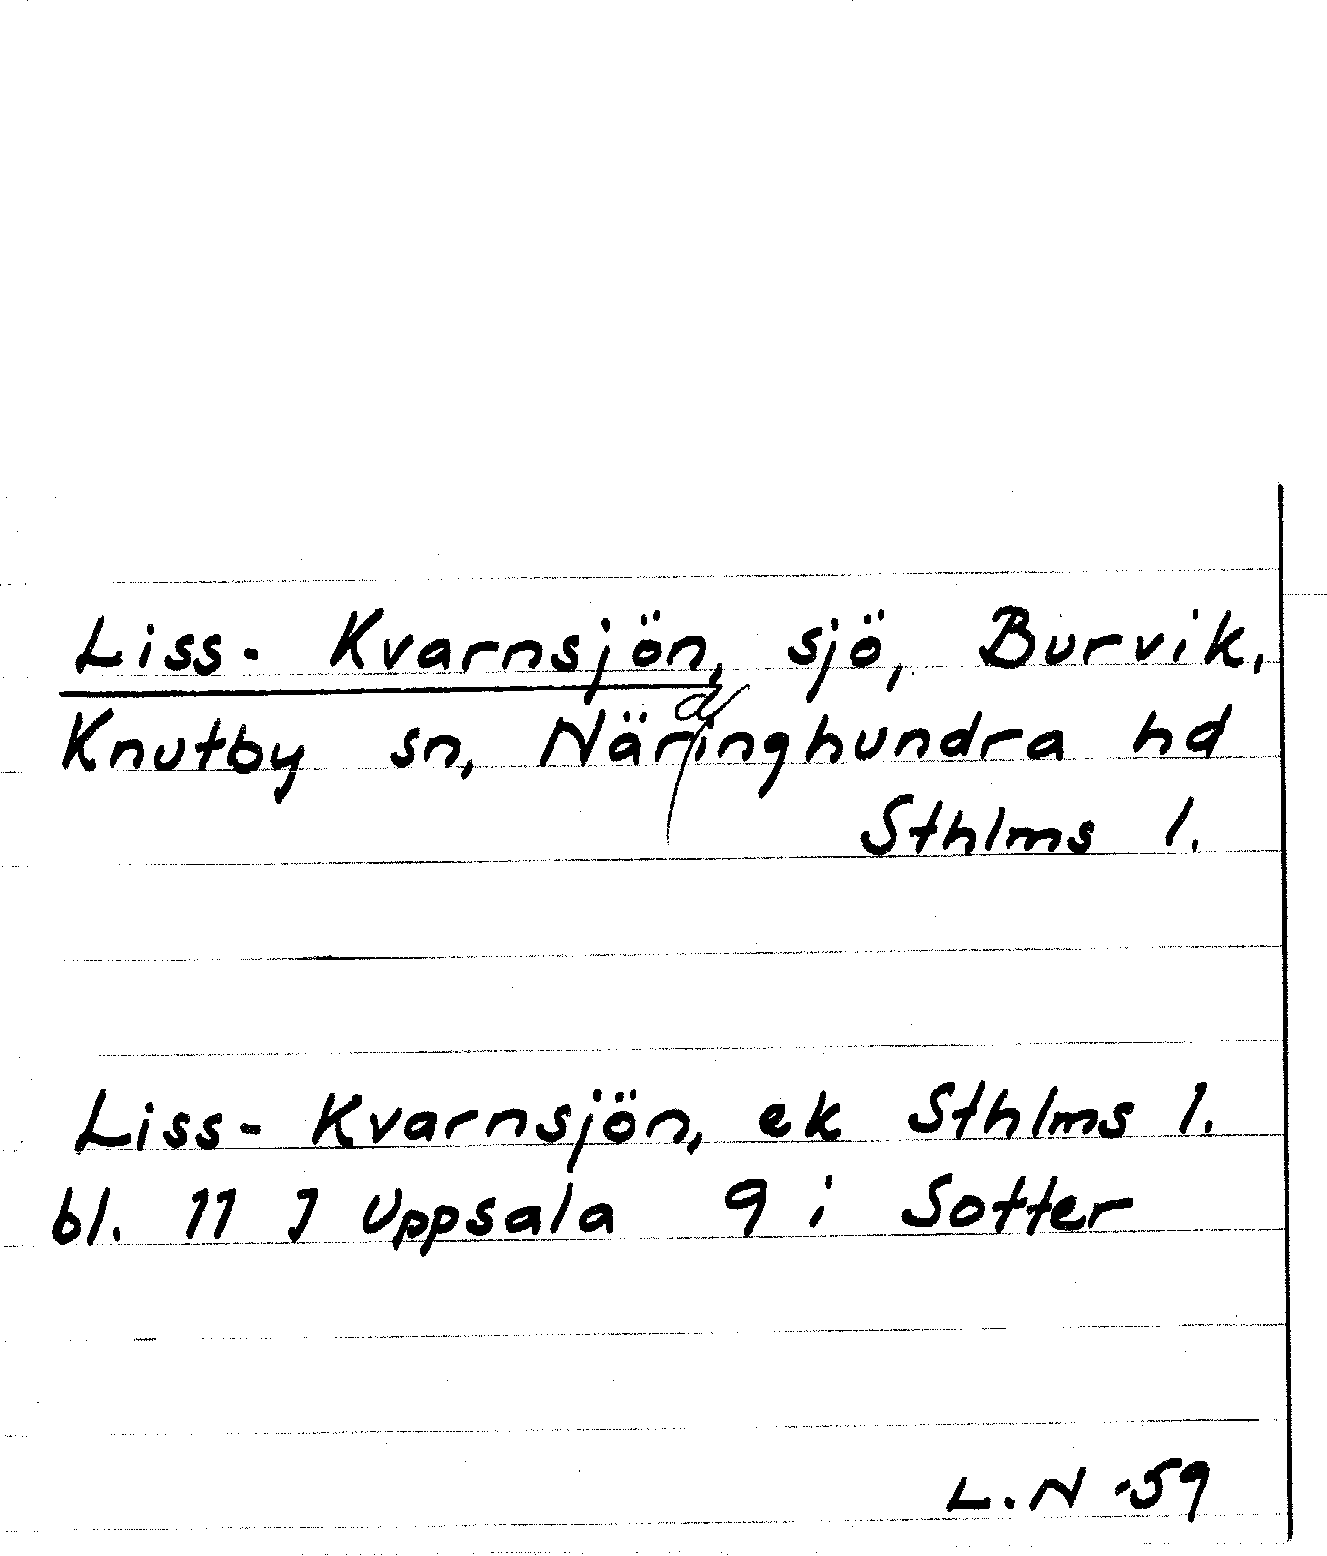 Liss- Kvarnsjön, sjö, Burvik,
Knutby sn, Näringhundra hd
Sthlms l.
Liss- Kvarnsjön, ek Sthlms l.
bl. 11 J Uppsala 9 i Sotter
L.N -59